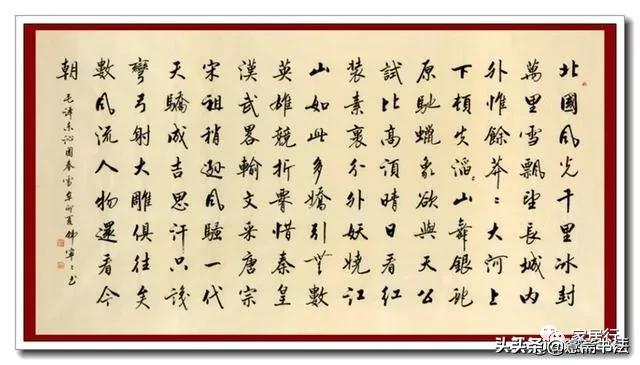 北國風光千里冰封
萬里雪飄望長城内
外惟餘莽〻大河上
下頓失滔〻山舞銀蛇
原馳蠟象欲與天公
試比高須晴日看紅
裝素裹分外妖嬈江
山如此多嬌引無數
英雄競折腰惜秦皇
漢武畧輸文采唐宗
宋祖稍遜風騷一代
天驕成吉思汗只識
彎弓射大雕俱往矣
數風流人物還看今
朝
毛澤東沁園春雪辛卯夏
家居行
头条
书法